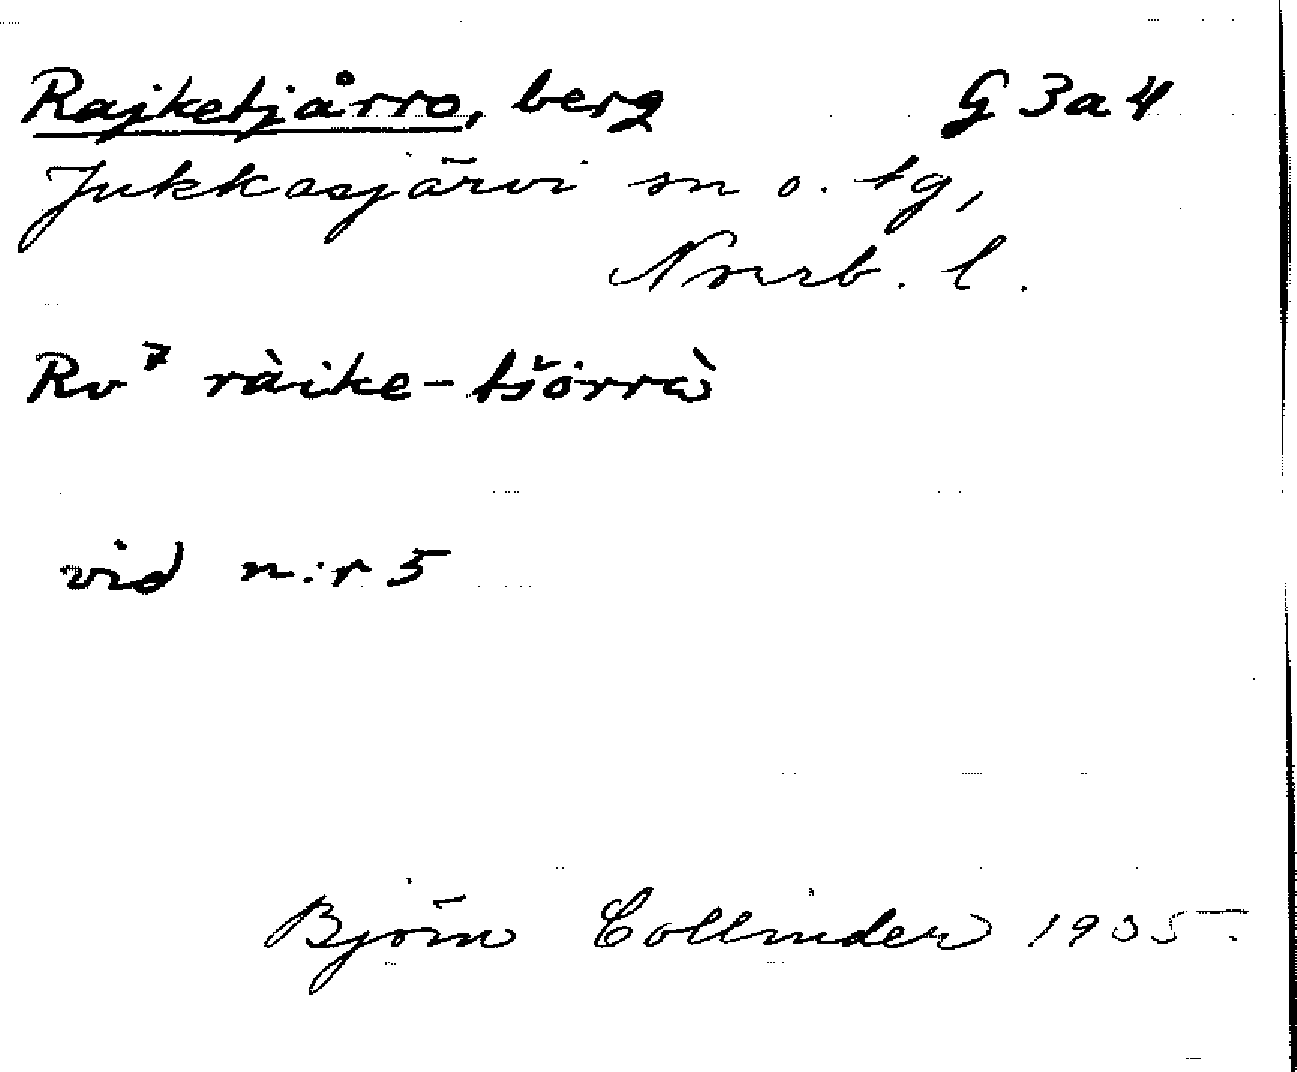 Rajketjårro, berg G 3a4
Jukkasjärvi sn o. tg,
Norrb. l.
Rv⁷ ràike-tšǒrrà
vid n:r 5
Björn Collinder 1935.